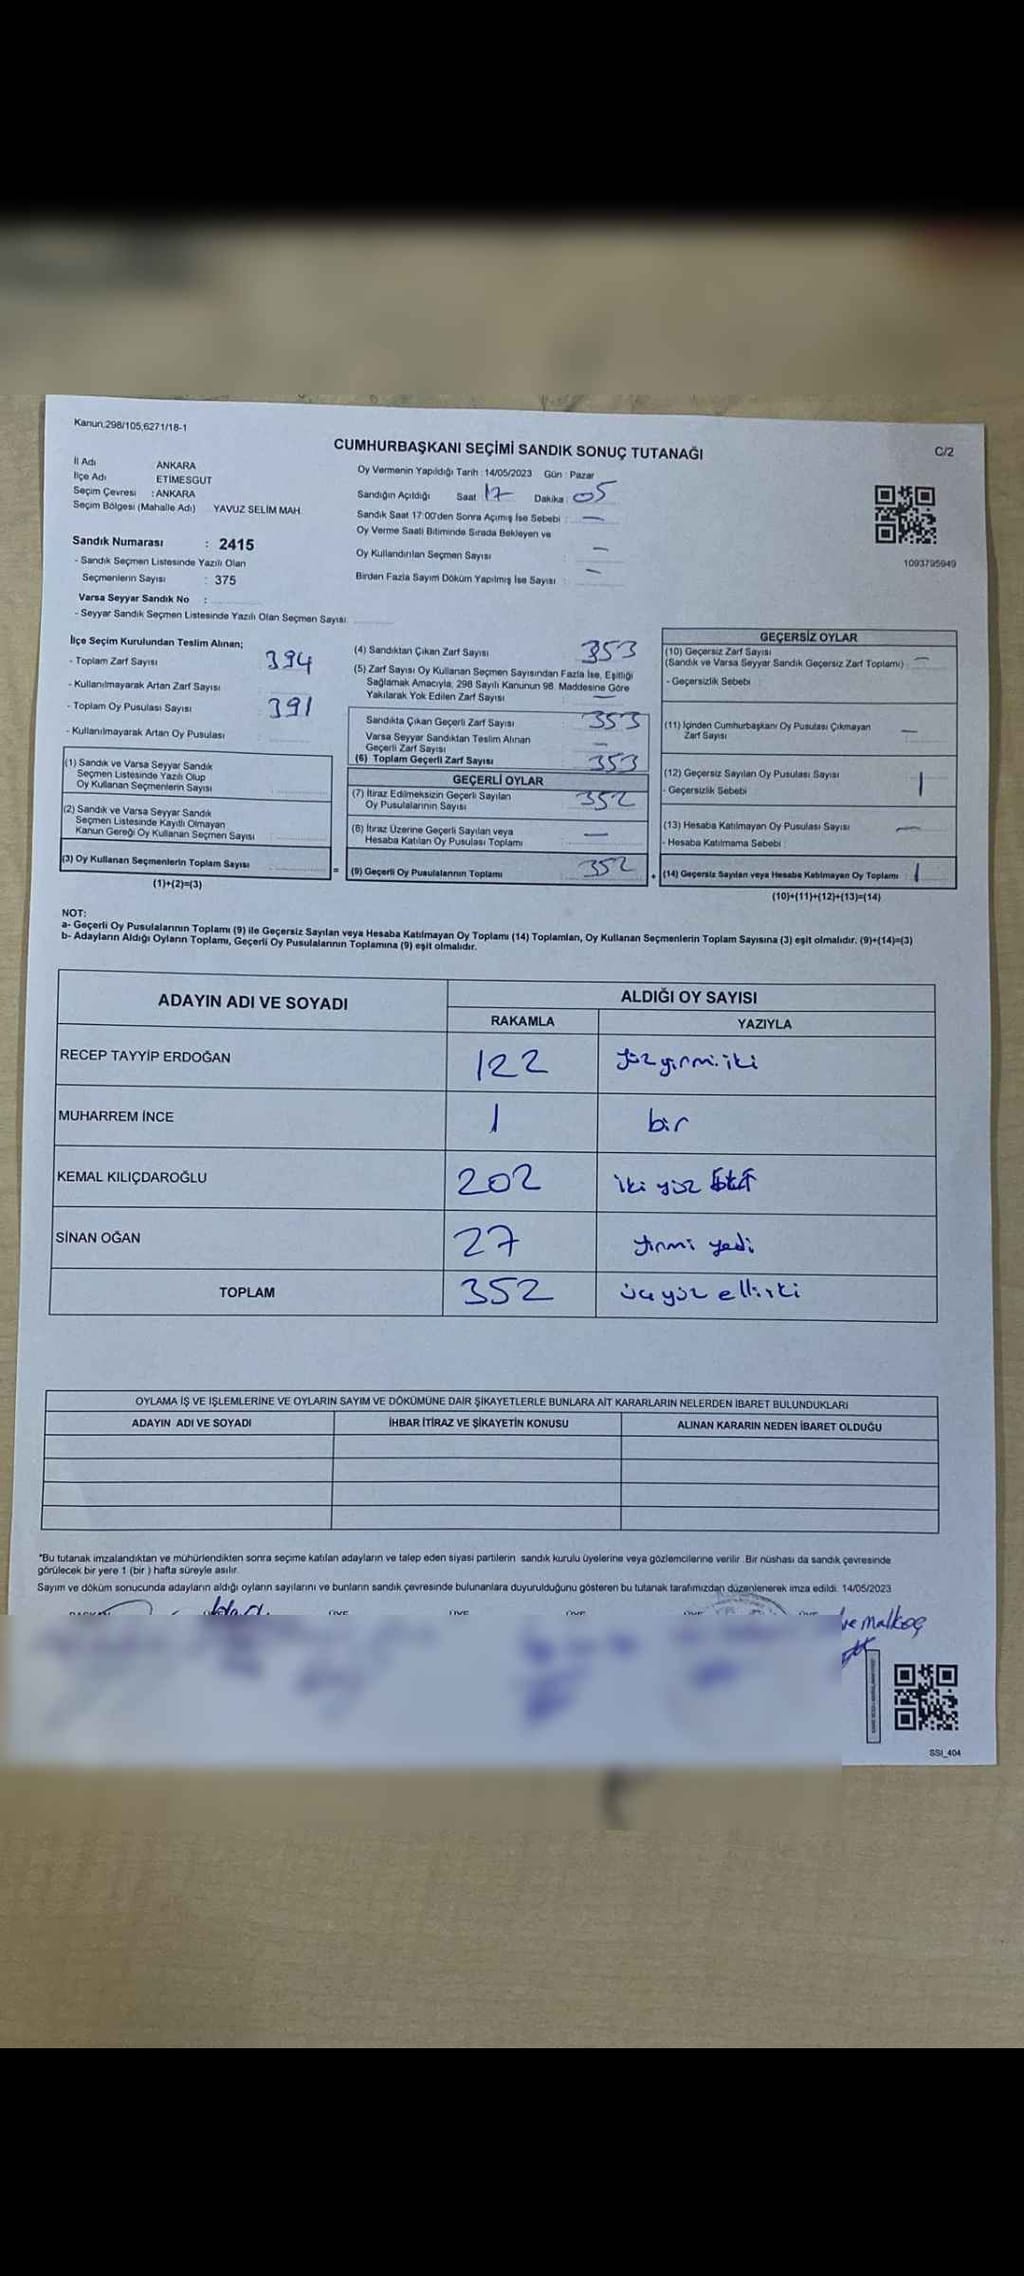 Kanun.298/105,6271/18-1
CUMHURBAŞKANI SEÇİMİ SANDIK SONUÇ TUTANAĞI
C/2
İl Adı ANKARA
İlçe Adı ETİMESGUT
Seçim Çevresi : ANKARA
Seçim Bölgesi (Mahalle Adı) YAVUZ SELİM MAH.
Sandık Numarası : 2415
- Sandık Seçmen Listesinde Yazılı Olan
Seçmenlerin Sayısı : 375
Varsa Seyyar Sandık No :
- Seyyar Sandık Seçmen Listesinde Yazılı Olan Seçmen Sayısı:
Oy Vermenin Yapıldığı Tarih :14/05/2023 Gün : Pazar
Sandığın Açıldığı Saat 17 Dakika : 05
Sandık Saat 17:00'den Sonra Açımış İse Sebebi : —
Oy Verme Saati Bitiminde Sırada Bekleyen ve
Oy Kullandırılan Seçmen Sayısı : —
Birden Fazla Sayım Döküm Yapılmış İse Sayısı : —
1093795949
İlçe Seçim Kurulundan Teslim Alınan;
- Toplam Zarf Sayısı 394
- Kullanılmayarak Artan Zarf Sayısı
- Toplam Oy Pusulası Sayısı 391
- Kullanılmayarak Artan Oy Pusulası
(1) Sandık ve Varsa Seyyar Sandık
Seçmen Listesinde Yazılı Olup
Oy Kullanan Seçmenlerin Sayısı
(2) Sandık ve Varsa Seyyar Sandık
Seçmen Listesinde Kayıtlı Olmayan
Kanun Gereği Oy Kullanan Seçmen Sayısı
(3) Oy Kullanan Seçmenlerin Toplam Sayısı =
(1)+(2)=(3)
(4) Sandıktan Çıkan Zarf Sayısı 353
(5) Zarf Sayısı Oy Kullanan Seçmen Sayısından Fazla İse, Eşitliği
Sağlamak Amacıyla, 298 Sayılı Kanunun 98. Maddesine Göre
Yakılarak Yok Edilen Zarf Sayısı : —
Sandıkta Çıkan Geçerli Zarf Sayısı : 353
Varsa Seyyar Sandıktan Teslim Alınan
Geçerli Zarf Sayısı —
(6) Toplam Geçerli Zarf Sayısı : 353
GEÇERLİ OYLAR
(7) İtiraz Edilmeksizin Geçerli Sayılan
Oy Pusulalarının Sayısı 352
(8) İtiraz Üzerine Geçerli Sayılan veya
Hesaba Katılan Oy Pusulası Toplamı —
(9) Geçerli Oy Pusulalarının Toplamı 352 +
GEÇERSİZ OYLAR
(10) Geçersiz Zarf Sayısı
(Sandık ve Varsa Seyyar Sandık Geçersiz Zarf Toplamı) : —
- Geçersizlik Sebebi :
(11) İçinden Cumhurbaşkanı Oy Pusulası Çıkmayan
Zarf Sayısı —
(12) Geçersiz Sayılan Oy Pusulası Sayısı 1
- Geçersizlik Sebebi
(13) Hesaba Katılmayan Oy Pusulası Sayısı : —
- Hesaba Katılmama Sebebi :
(14) Geçersiz Sayılan veya Hesaba Katılmayan Oy Toplamı : 1
(10)+(11)+(12)+(13)=(14)
NOT:
a- Geçerli Oy Pusulalarının Toplamı (9) ile Geçersiz Sayılan veya Hesaba Katılmayan Oy Toplamı (14) Toplamları, Oy Kullanan Seçmenlerin Toplam Sayısına (3) eşit olmalıdır. (9)+(14)=(3)
b- Adayların Aldığı Oyların Toplamı, Geçerli Oy Pusulalarının Toplamına (9) eşit olmalıdır.
ADAYIN ADI VE SOYADI ALDIĞI OY SAYISI
RAKAMLA YAZIYLA
RECEP TAYYİP ERDOĞAN 122 yüz yirmi iki
MUHARREM İNCE 1 bir
KEMAL KILIÇDAROĞLU 202 iki yüz
SİNAN OĞAN 27 yirmi yedi
TOPLAM 352 üç yüz elli iki
OYLAMA İŞ VE İŞLEMLERİNE VE OYLARIN SAYIM VE DÖKÜMÜNE DAİR ŞİKAYETLERLE BUNLARA AİT KARARLARIN NELERDEN İBARET BULUNDUKLARI
ADAYIN ADI VE SOYADI İHBAR İTİRAZ VE ŞİKAYETİN KONUSU ALINAN KARARIN NEDEN İBARET OLDUĞU
*Bu tutanak imzalandıktan ve mühürlendikten sonra seçime katılan adayların ve talep eden siyasi partilerin sandık kurulu üyelerine veya gözlemcilerine verilir. Bir nüshası da sandık çevresinde
görülecek bir yere 1 (bir ) hafta süreyle asılır.
Sayım ve döküm sonucunda adayların aldığı oyların sayılarını ve bunların sandık çevresinde bulunanlara duyurulduğunu gösteren bu tutanak tarafımızdan düzenlenerek imza edildi. 14/05/2023
Malkoç
SSI_404